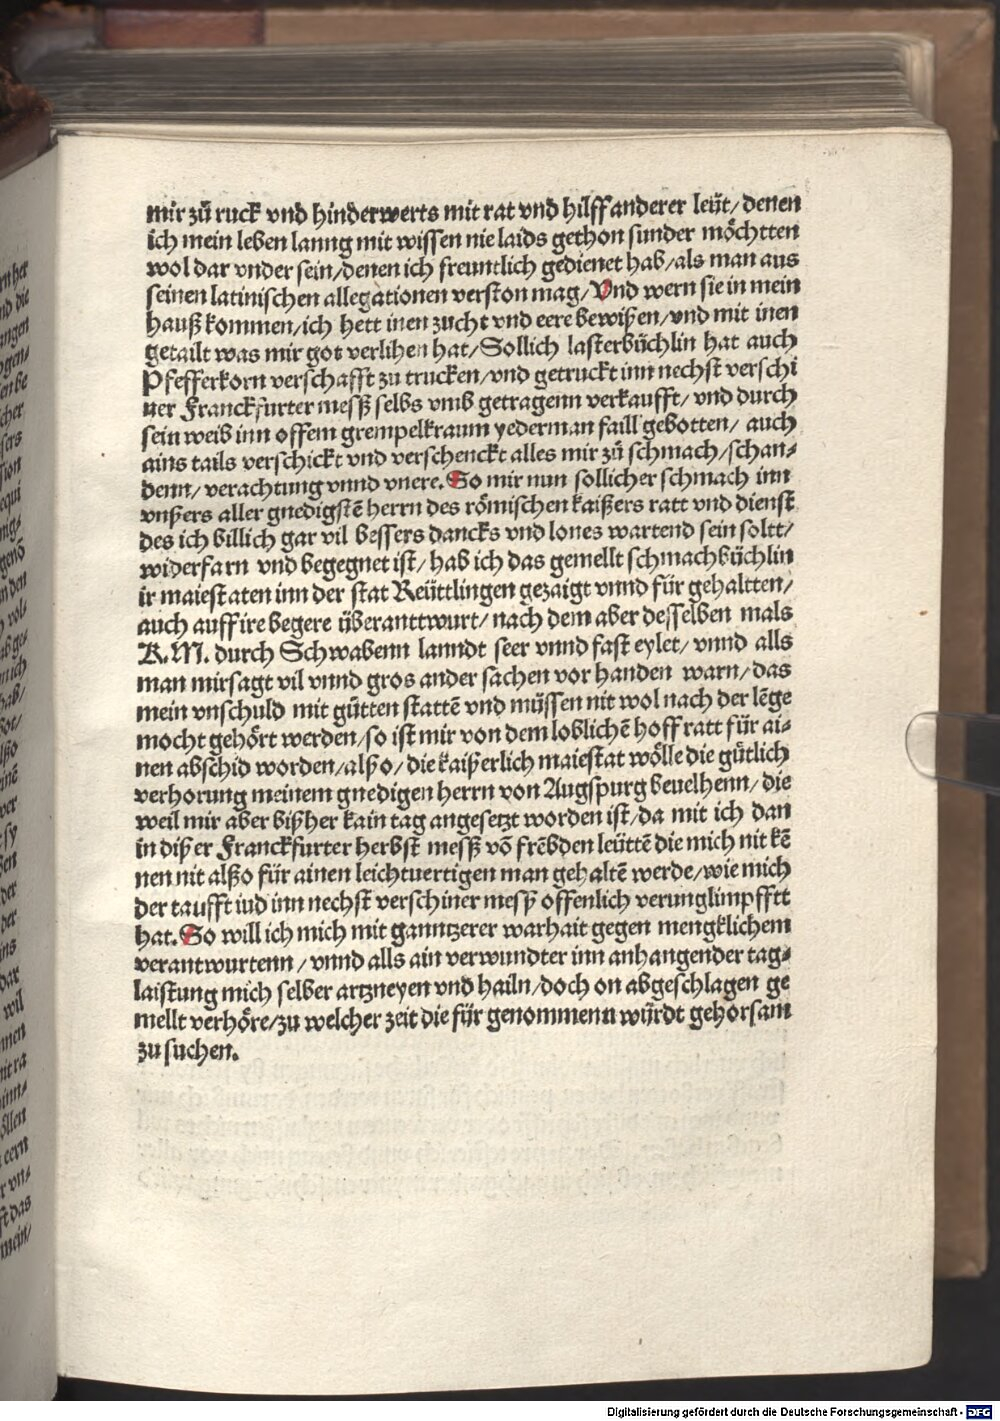 mir zů ruck vnd hinderwerts mit rat vnd hilff anderer leüt/denen
ich mein leben lanng mit wissen nie laids gethon sunder möchtten
wol dar vnder sein/denen ich freuntlich gedienet hab/als man aus
seinen latinischen allegationen verston mag/Vnd wern sie in mein
hauß kommen/ich hett inen zucht vnd eere bewißen/vnd mit inen
getailt was mir got verlihen hat/Sollich lasterbüchlin hat auch
Pfefferkorn verschafft zu trucken/vnd getruckt inn nechst verschi
ner Franckfurter messß selbs vmb getragenn verkaufft/vnd durch
sein weib inn offem grempelkraum yederman faill gebotten/auch
ains tails verschickt vnd verschenckt alles mir zů schmach/schan⸗
denn/verachtung vnnd vnere. So mir nun sollicher schmach inn
vnßers aller gnedigstē herrn des römischen kaißers ratt vnd dienst
des ich billich gar vil bessers dancks vnd lones wartend sein soltt/
widerfarn vnd begegnet ist/hab ich das gemellt schmachbüchlin
ir maiestaten inn der stat Reüttlingen gezaigt vnnd für gehaltten/
auch auff ire begere überanttwurt/nach dem aber desselben mals
K.M. durch Schwabenn lanndt seer vnnd fast eylet/vnnd alls
man mir sagt vil vnnd gros ander sachen vor handen warn/das
mein vnschuld mit gütten stattē vnd müssen nit wol nach der lēge
mocht gehört werden/so ist mir von dem loblichē hoff ratt für ai⸗
nen abschid worden/alßo/die kaißerlich maiestat wölle die gütlich
verhorung meinem gnedigen herrn von Augspurg beuelhenn/die
weil mir aber bißher kain tag angesetzt worden ist/da mit ich dan
in dißer Franckfurter herbst messß vō frēbden leüttē die mich nit kē
nen nit alßo für ainen leichtuertigen man gehaltē werde/wie mich
der taufft iud inn nechst verschiner messß offenlich verunglimpfftt
hat. So will ich mich mit ganntzerer warhait gegen mengklichem
verantwurtenn/vnnd alls ain verwundter inn anhangender tag⸗
laistung mich selber artzneyen vnd hailn/doch on abgeschlagen ge
mellt verhöre/zu welcher zeit die für genommenn würdt gehorsam
zu suchen.
Digitalisierung gefördert durch die Deutsche Forschungsgemeinschaft - DFG